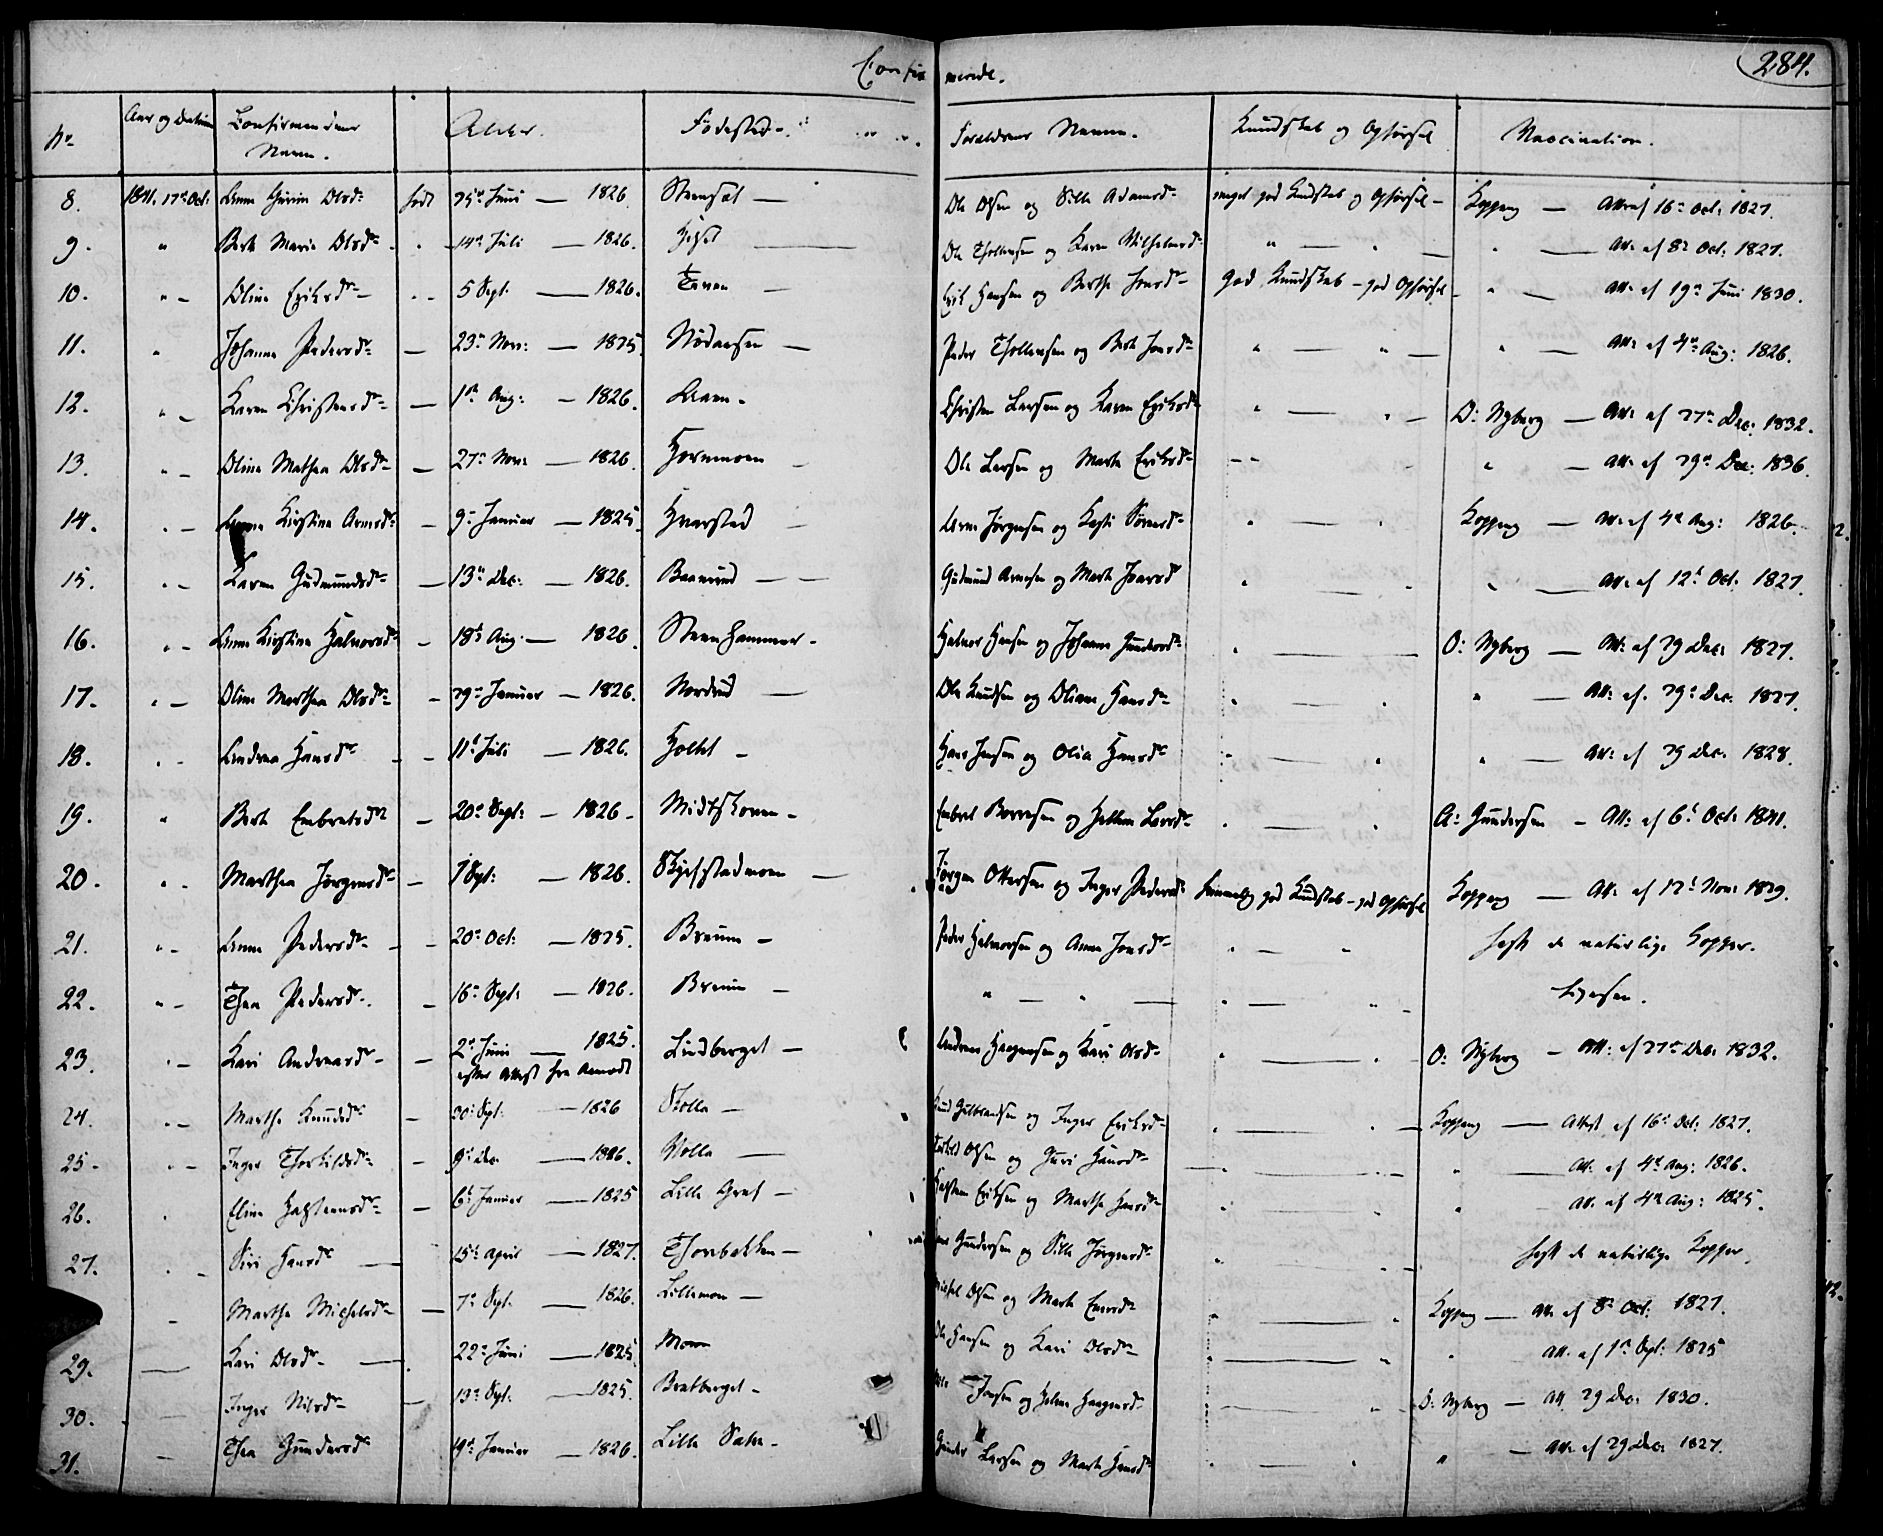 Confirmerede.
284.
No Aar og Datum Confirmandens Navn. Alder. Fødested. Forældrenes Navne. Kundskab og Opførsel Vaccination.
8. 1841. 17de Oct: Anne Gurine Olsd: født 25de Juni — 1826. Steensæt — Ole Olsen og Sille Adamsd: meget god Kundskab og Opførsel — Koppang — Att: af 16de Oct: 1827.
9. " Berte Marie Olsd: 14de Juli — 1826. Ole Thollevsen og Karen Wilhelmsd: " — " — Att: af 8de Oct: 1827.
10. " — Oline Eriksd: 5 Sept: — 1826. Erik Hansen og Berthe Jonsd: god Kundskab — god Opførsel — " — Att: af 19de Juni 1830.
11. " Johanne Pedersd: — 23de Nov: — 1825. Nødaasen — Peder Thollevsen og Berte Jonsd: " — " — " — Att: af 4de Aug: 1826.
12. " — Karen Christensd: — 1ste Aug: — 1826. Christen Larsen og Karen Eriksd: " — " — O: Nyberg — Att: af 27de Dec: 1832.
13. " — Oline Mathea Olsd: — 27de Nov: — 1826. Hornmoen — Ole Larsen og Marte Eriksd: " — Att: af 29de Dec: 1836.
14. " — Anne Kirstine Arnesd: — 9de Januar — 1825. Hvarstad — Arne Jørgensen og Kasti Simensd: " — " Koppang — Att: af 4de Aug: 1826.
15. " — Karen Gudmundsd: — 13de Dec: — 1826. Baarud — Gudmund Arnesen og Marte Ivarsd " — Att: af 12te Oct. 1827.
16. " — Anne Kirstine Halvorsd: — 18de Aug. — 1826. Steenhammer — Halvor Hansen og Johanne Gundersd: " — O: Nyberg — Att: af 29 Dec: 1827.
17. " — Oline Marthea Olsd: — 29de Januar — 1826. Nordrud — Ole Knudsen og Oliane Hansd: " — " " — Att: af. 29de Dec. 1827.
18. " — Andrea Hansd: — 11te Juli — 1826. Holtet — Hans Jensen og Olia Hansd: " — " " — Att: af 29 Dec. 1828.
19. " Berte Embretsd: — 20de Sept: — 1826 — Midtskoven — Embret Borresen og Larsd: " — " A: Gundersen — Att: af 6te Oct: 1841.
20. " — Marthea Jørgensd: — 7 Sept: — 1826. Skjefstadmoen — Jørgen Ottersen og Inger Pedersd: temmelig god Kundskab — god Opførsel Koppang — Att: af 12te Nov: 1829.
21. " — Anne Pedersd: — 20de Oct: — 1825. Breum — Peder Halvorsen og Anne Jonsd: " — " havt de naturlige Kopper.
22. " — Thea Pedersd: — 16de Sept: — 1826. Breum — " — " — " — " ligesaa.
23. " — Kari Andreasd: — 2den Juni — 1825. efter Attest fra Aamodt Lindberget — Andreas Haagensen og Kari Olsd: " — " O: Nyberg — Att: af 27de Dec. 1832.
24. " — Marthe Knudsd: — 30de Sept: — 1826 Stolla — Knud Gulbrandsen og Inger Eriksd: " — " — Koppang — Attest af 16de Oct: 1827.
25. " — Inger Thorkildsd: — 9de Dec. — 1826. Olsen og Guri Hansd: — " — " " — Att: af 4de Aug: 1826.
26. " Eline Halsteensd: — 6te Januar — 1825 Lille Græf — Halsteen Eriksen og Marthe Hansd: " — " " — Att: af 4de Aug: 1825.
27. " — Siri Hansd: — 15de April — 1827. Thorbakken — Hans Gundersen og Sille Jørgensd: " — " havt de naturlige Kopper.
— Marthe Michelsd: — 7de Sept. — 1826. Lillemoen — Michel Olsen og Marte Enersd: " — " Koppang — Att: af 8de Oct: 1827.
29. — Kari Olsd: — 22de Juni — 1825. Moen Ole Hansen og Kari Olsd: " — " " Att: af 1ste Sept: 1825
30. — Inger Nilsd: — 13de Sept: — 1825. Bratberget — Nils Jensen og Helene Haagensd: " — " O: Nyberg — Att 29 Dec: 1830.
31. — Thea Gundersd: 19de Januar — 1826. Lille Sæte — Gunder Larsen og Marte Hansd: " — " " — Att: af 29 Dec: 1827.